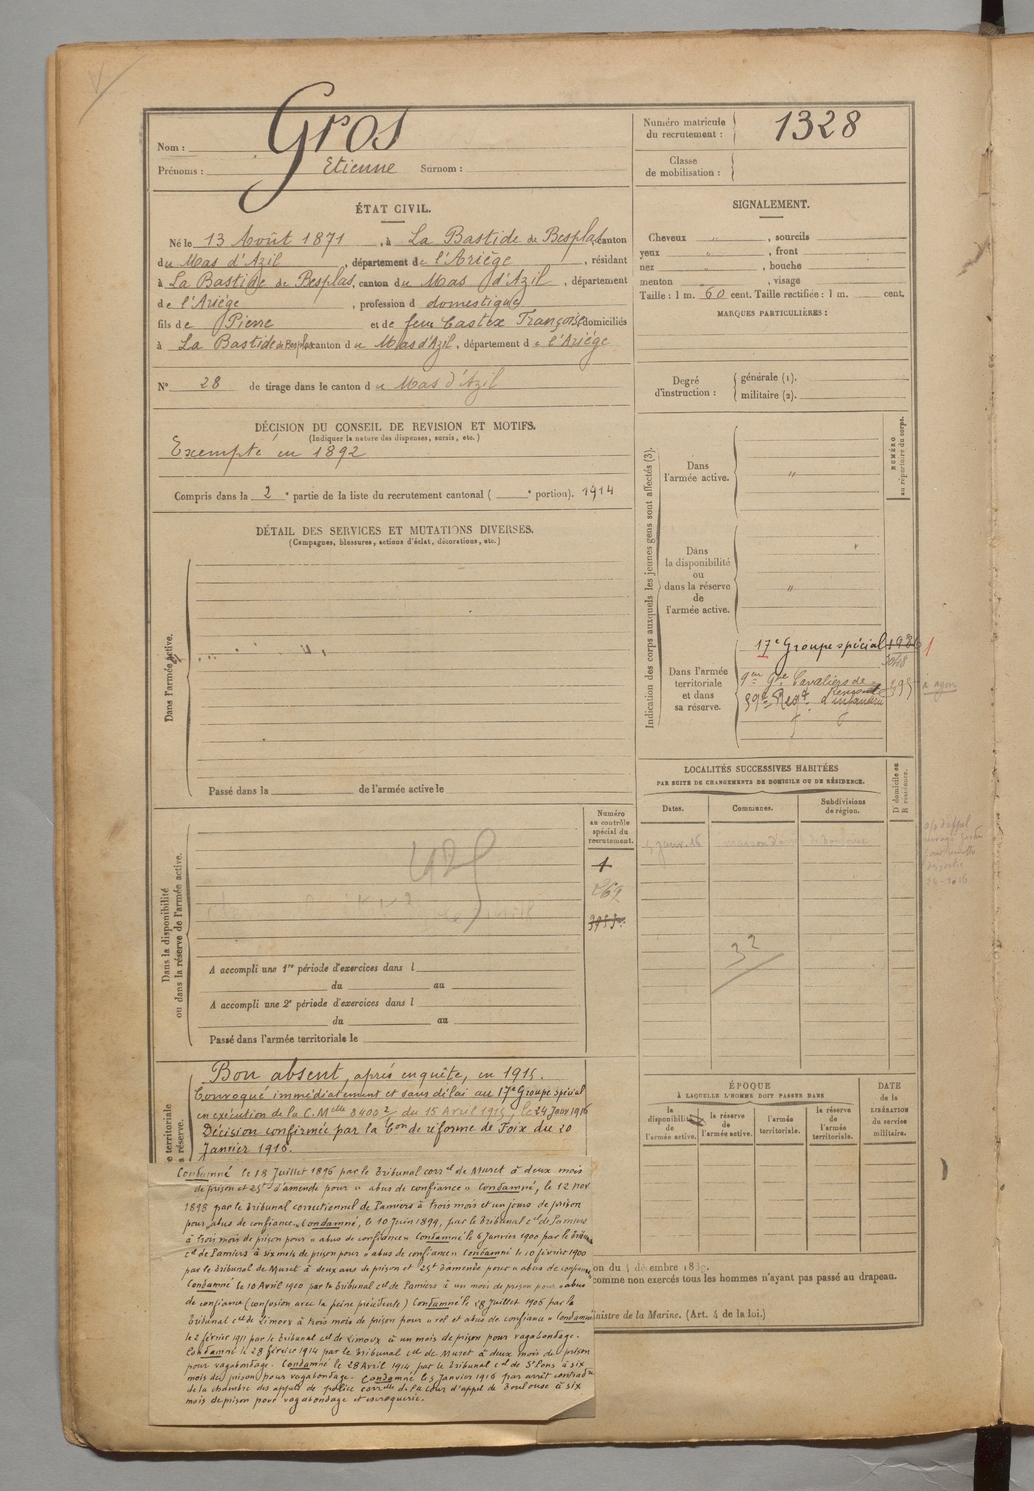 Nom : Gros
Prénoms : Etienne Surnom :
Numéro matricule
du recrutement : 1328
Classe
de mobilisation :
ÉTAT CIVIL.
Né le 13 Août 1871, à La Bastide de Besplas, canton
du Mas d'Azil, département de l'Ariège, résidant
à La Bastide de Besplas, canton du Mas d'Azil, département
de l'Ariège, profession d domestique
fils de Pierre et de feue Castex Françoise domiciliés
à La Bastide de Besplas canton du Mas d'Azil, département de l'Ariége
N° 28 de tirage dans le canton du Mas d'Azil
SIGNALEMENT.
Cheveux " , sourcils
yeux " , front
nez " , bouche
menton , visage
Taille : 1 m. 60 cent. Taille rectifiée : 1 m. cent.
MARQUES PARTICULIÈRES :
Degré
d'instruction :
générale (1).
militaire (2).
DÉCISION DU CONSEIL DE REVISION ET MOTIFS.
(Indiquer la nature des dispenses, sursis, etc.)
Exempté en 1892
Compris dans la 2e partie de la liste du recrutement cantonal ( e portion). 1914
DÉTAIL DES SERVICES ET MUTATIONS DIVERSES.
(Campagnes, blessures, actions d'éclat, décorations, etc.)
Dans l'armée active.
Passé dans la de l'armée active le
Indication des corps auxquels les jeunes gens sont affectés (3).
NUMÉRO
au répertoire du corps.
Dans
l'armée active.
"
Dans
la disponibilité
ou
dans la réserve
de
l'armée active.
"
Dans l'armée
territoriale
et dans
sa réserve.
17e Groupe spécial
Cavaliers de
Remonte
59e Regt d'infanterie
LOCALITÉS SUCCESSIVES HABITÉES
PAR SUITE DE CHANGEMENTS DE DOMICILE OU DE RÉSIDENCE.
Dates.
Communes.
Subdivisions
de région.
D domicile ou
R résidence.
5 Janv. 16 maison d'arrêt de Toulouse
32
Dans la disponibilité
ou dans la réserve de l'armée active.
Numéro
au contrôle
spécial du
recrutement.
1
269
A accompli une 1re période d'exercices dans l
du au
A accompli une 2e période d'exercices dans l
du au
Passé dans l'armée territoriale le
e territoriale
a réserve.
Bon absent, après enquête, en 1915.
Convoqué immédiatement et sans délai au 17e Groupe spécial
en exécution de la C.Mlle 8400 2/ du 15 Avril 1915, le 24 Janv 1916
Décision confirmée par la Con de réforme de Foix du 20
Janvier 1916.
Condamné le 18 Juillet 1896 par le Tribunal correl de Muret à deux mois
de prison et 25f d'amende pour "abus de confiance" Condamné, le 12 nov
1898 par le Tribunal correctionnel de Pamiers à trois mois et un jour de prison
pour abus de confiance. Condamné, le 10 Juin 1899, par le Tribunal cel de Pamiers
à trois mois de prison pour "abus de confiance" Condamné le 6 Janvier 1900 par le Tribunal
cel de Pamiers à six mois de prison pour "abus de confiance" Condamné le 10 février 1900
par le Tribunal de Muret à deux ans de prison et 25f d'amende pour "abus de confiance"
Condamné le 10 Avril 1900 par le Tribunal cel de Pamiers à un mois de prison pour "abus
de confiance (confusion avec la peine précédente) Condamné le 28 Juillet 1906 par le
Tribunal cel de Limoux à trois mois de prison pour "vol et abus de confiance" Condamné
le 2 février 1911 par le Tribunal cel de Limoux à un mois de prison pour vagabondage.
Condamné le 28 février 1914 par le Tribunal cel de Muret à deux mois de prison
pour vagabondage. Condamné le 28 Avril 1914 par le Tribunal cel de St Pons à six
mois de prison pour vagabondage. Condamné le 5 Janvier 1916 par arrêt contradre
de la chambre des appels de police corrlle de la Cour d'appel de Toulouse à six
mois de prison pour vagabondage et escroquerie.
ÉPOQUE
À LAQUELLE L'HOMME DOIT PASSER DANS
la
disponibilité
de
l'armée active.
la réserve
de
l'armée active.
l'armée
territoriale.
la réserve
de
l'armée
territoriale.
DATE
de la
LIBÉRATION
du service
militaire.
on du 4 décembre 1889.
comme non exercés tous les hommes n'ayant pas passé au drapeau.
inistre de la Marine. (Art. 4 de la loi.)